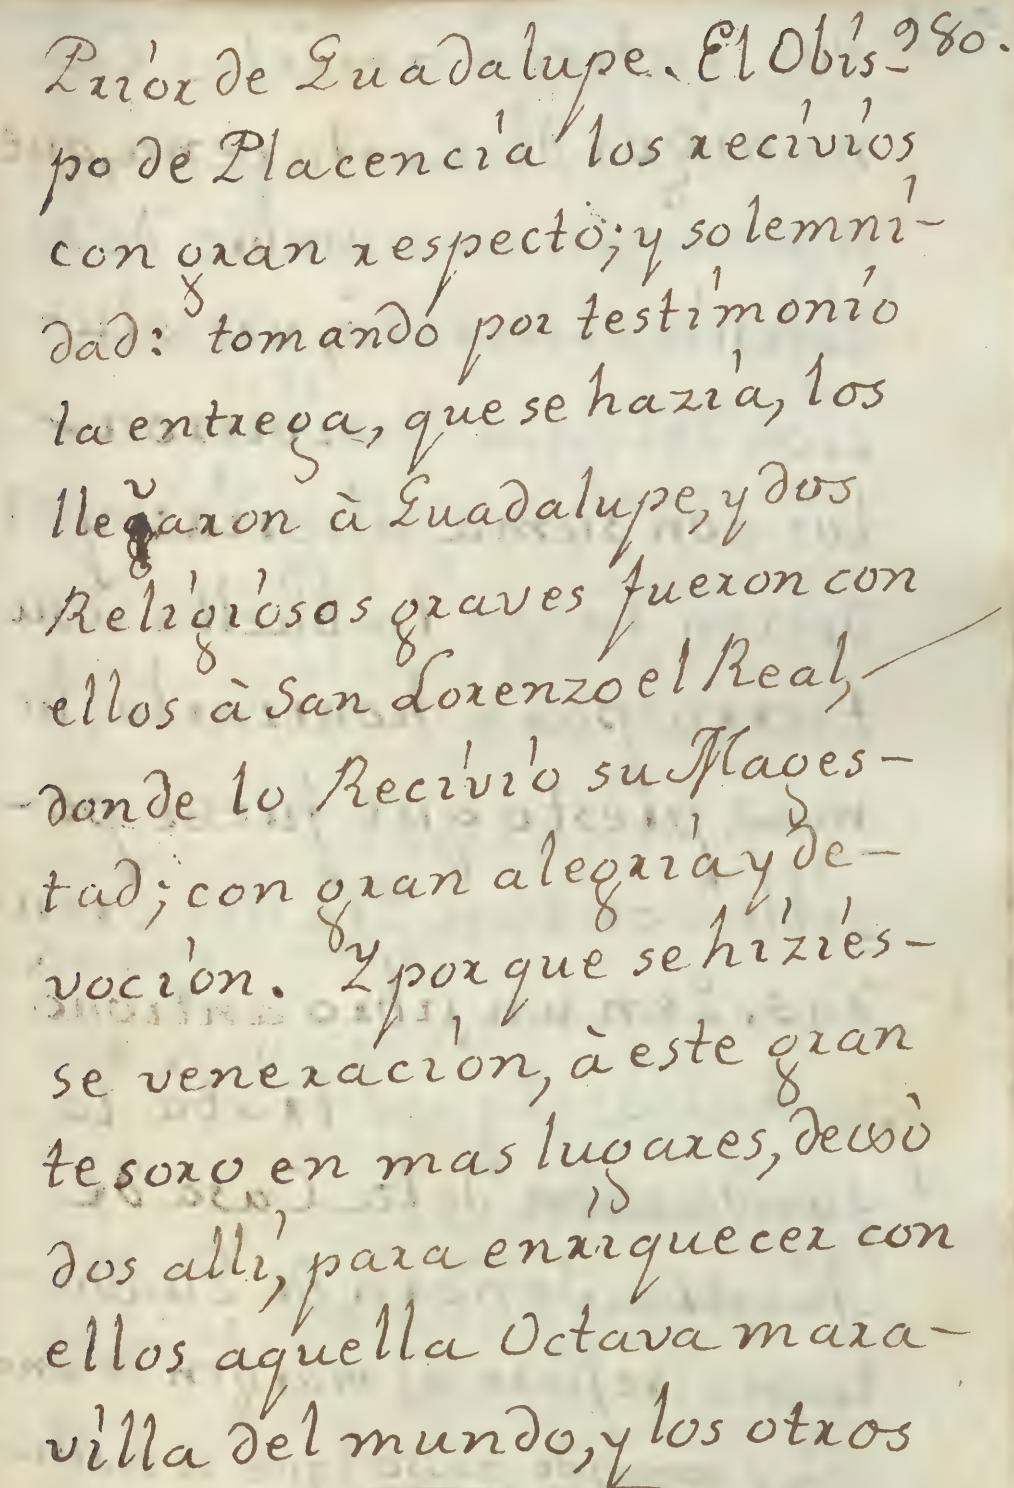 Prior de Guadalupe. El Obis- 280.
po de Placencia los recivios
con gran respecto; y solemni-
dad: tomando por testimonio
la entrega, que se hazia, los
llegaron à Guadalupe, y dos
Religiosos graves fueron con
ellos à San Lorenzo el Real,
donde lo Recivio su Mages-
tad; con gran alegria y de-
vocion. Y por que se hizies-
se veneracion, à este gran
tesoro en mas lugares, dexò
dos alli, para enriquecer con
ellos aquella Octava mara-
villa del mundo, y los otros